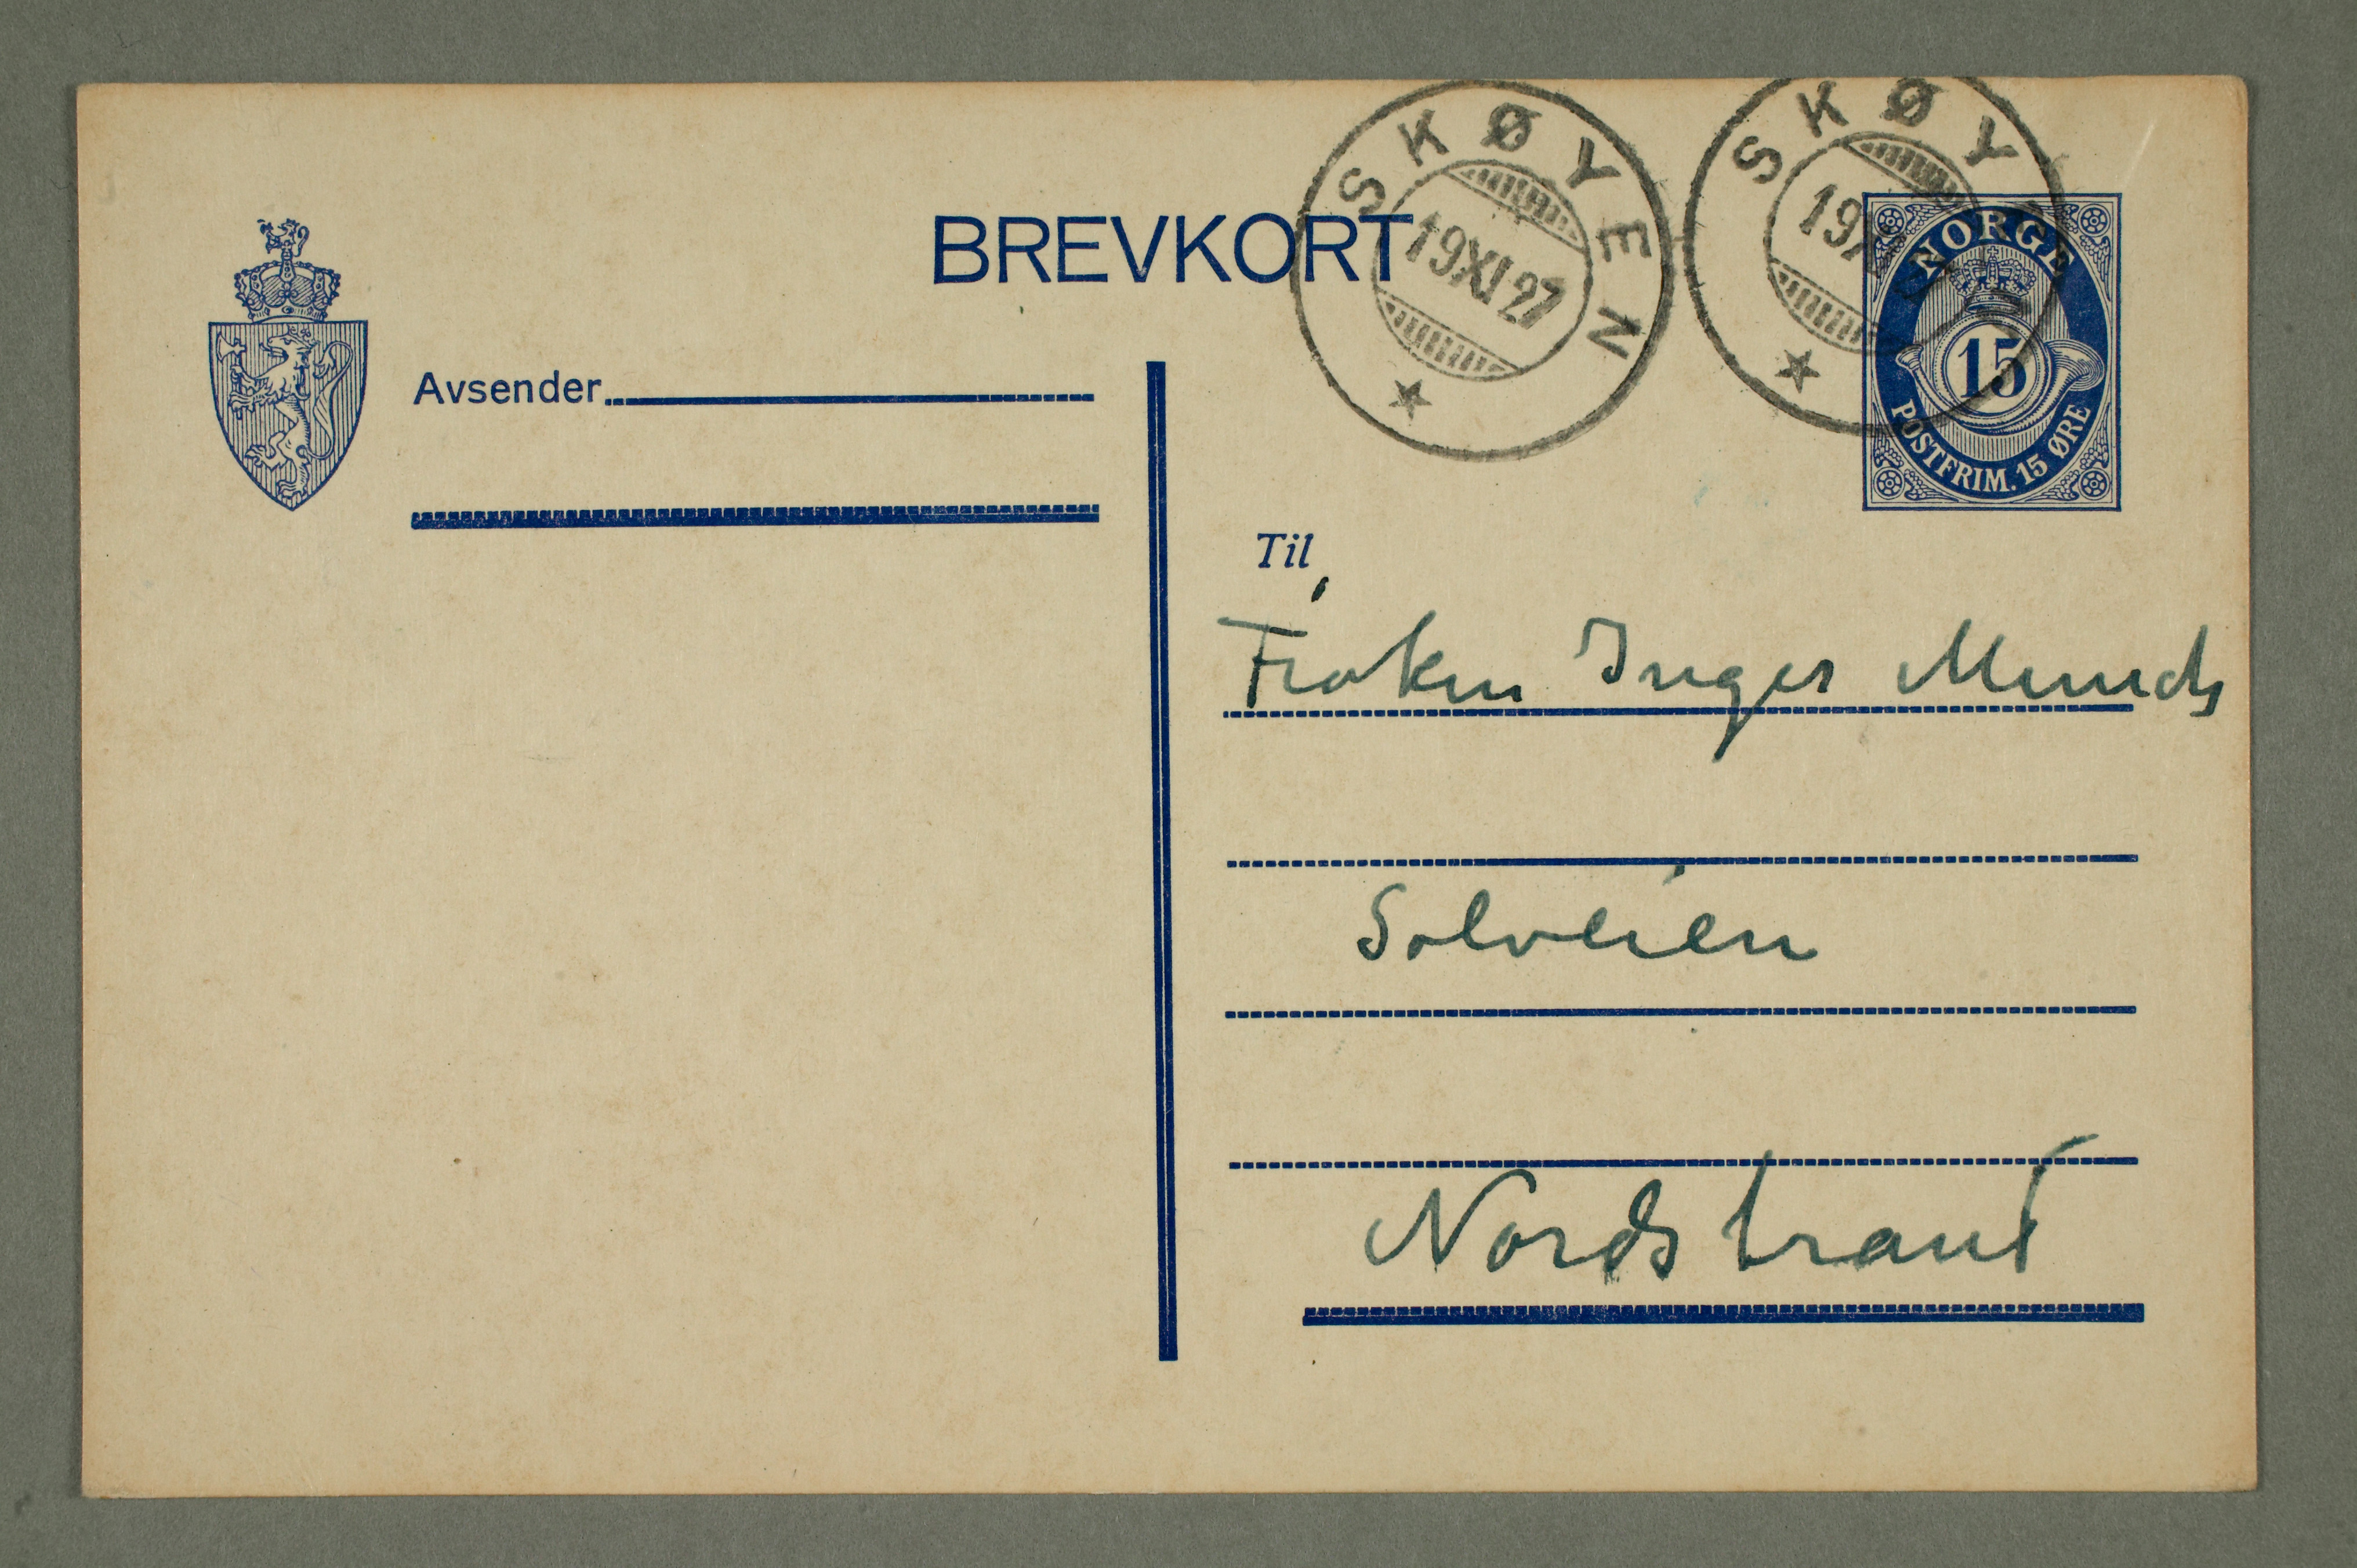 BREVKORT
SKØYEN
19 XI 27
SKØY
19 X
NORGE
15
POSTFRIM. 15 ØRE
Avsender
Til
Frøken Inger Munch
Solveien
Nordstrand